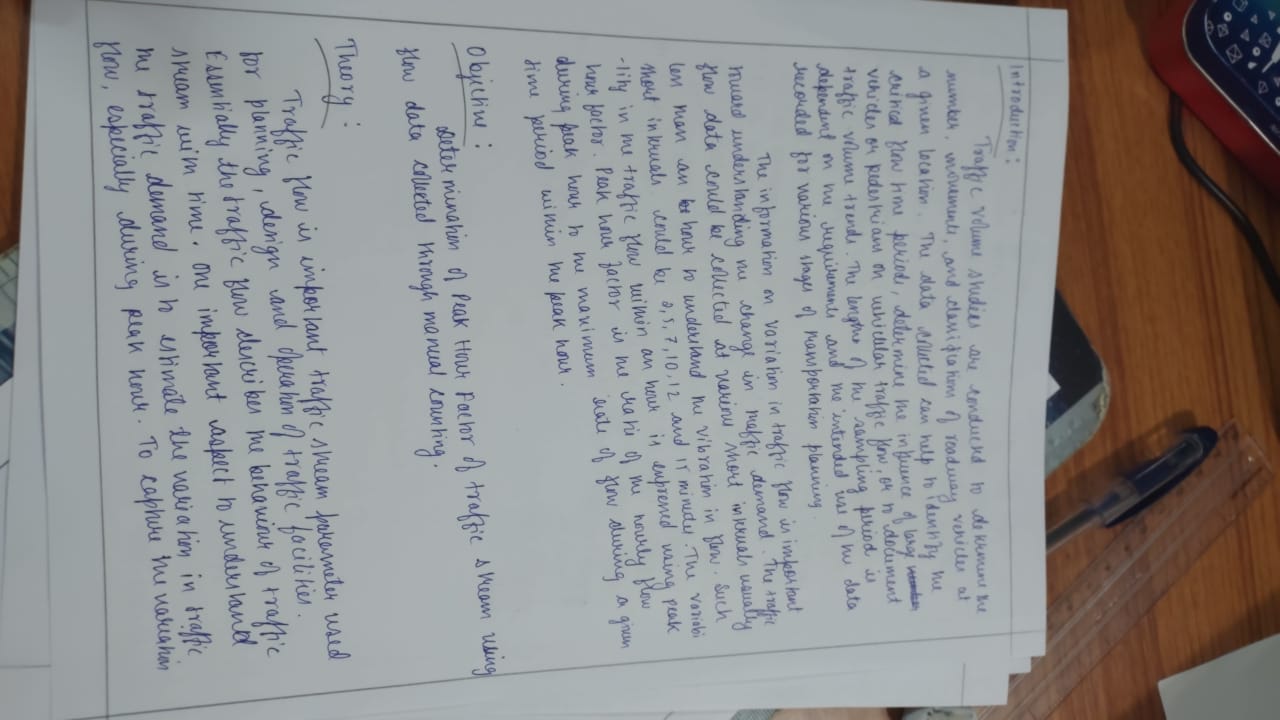 Introduction:
Traffic volume studies are conducted to determine the
number, movements, and classifications of roadway vehicles at
a given location. The data collected can help to identify the
critical flow time periods, determine the influence of large
vehicles or pedestrians on vehicular traffic flow, or to document
traffic volume trends. The length of the sampling period is
dependent on the requirements and the intended use of the data
recorded for various stages of transportation planning.
The information on variation in traffic flow is important
toward understanding the change in traffic demand. The traffic
flow data could be collected at various short intervals usually
less than an hour to understand the vibration in flow. Such
short intervals could be 2,5,7,10,12 and 15 minutes. The variabi
-lity in the traffic flow within an hour is expressed using peak
hour factor. Peak hour factor is the ratio of the hourly flow
during peak hour to the maximum rate of flow during a given
time period within the peak hour.
Objective:
Determination of Peak Hour Factor of traffic stream using
flow data collected through manual counting.
Theory:
Traffic flow is important traffic stream parameter used
for planning, design and operation of traffic facilities.
Essentially the traffic flow describes the behaviour of traffic
stream with time. One important aspect to understand
the traffic demand is to estimate the variation in traffic
flow, especially during peak hour. To capture the variation